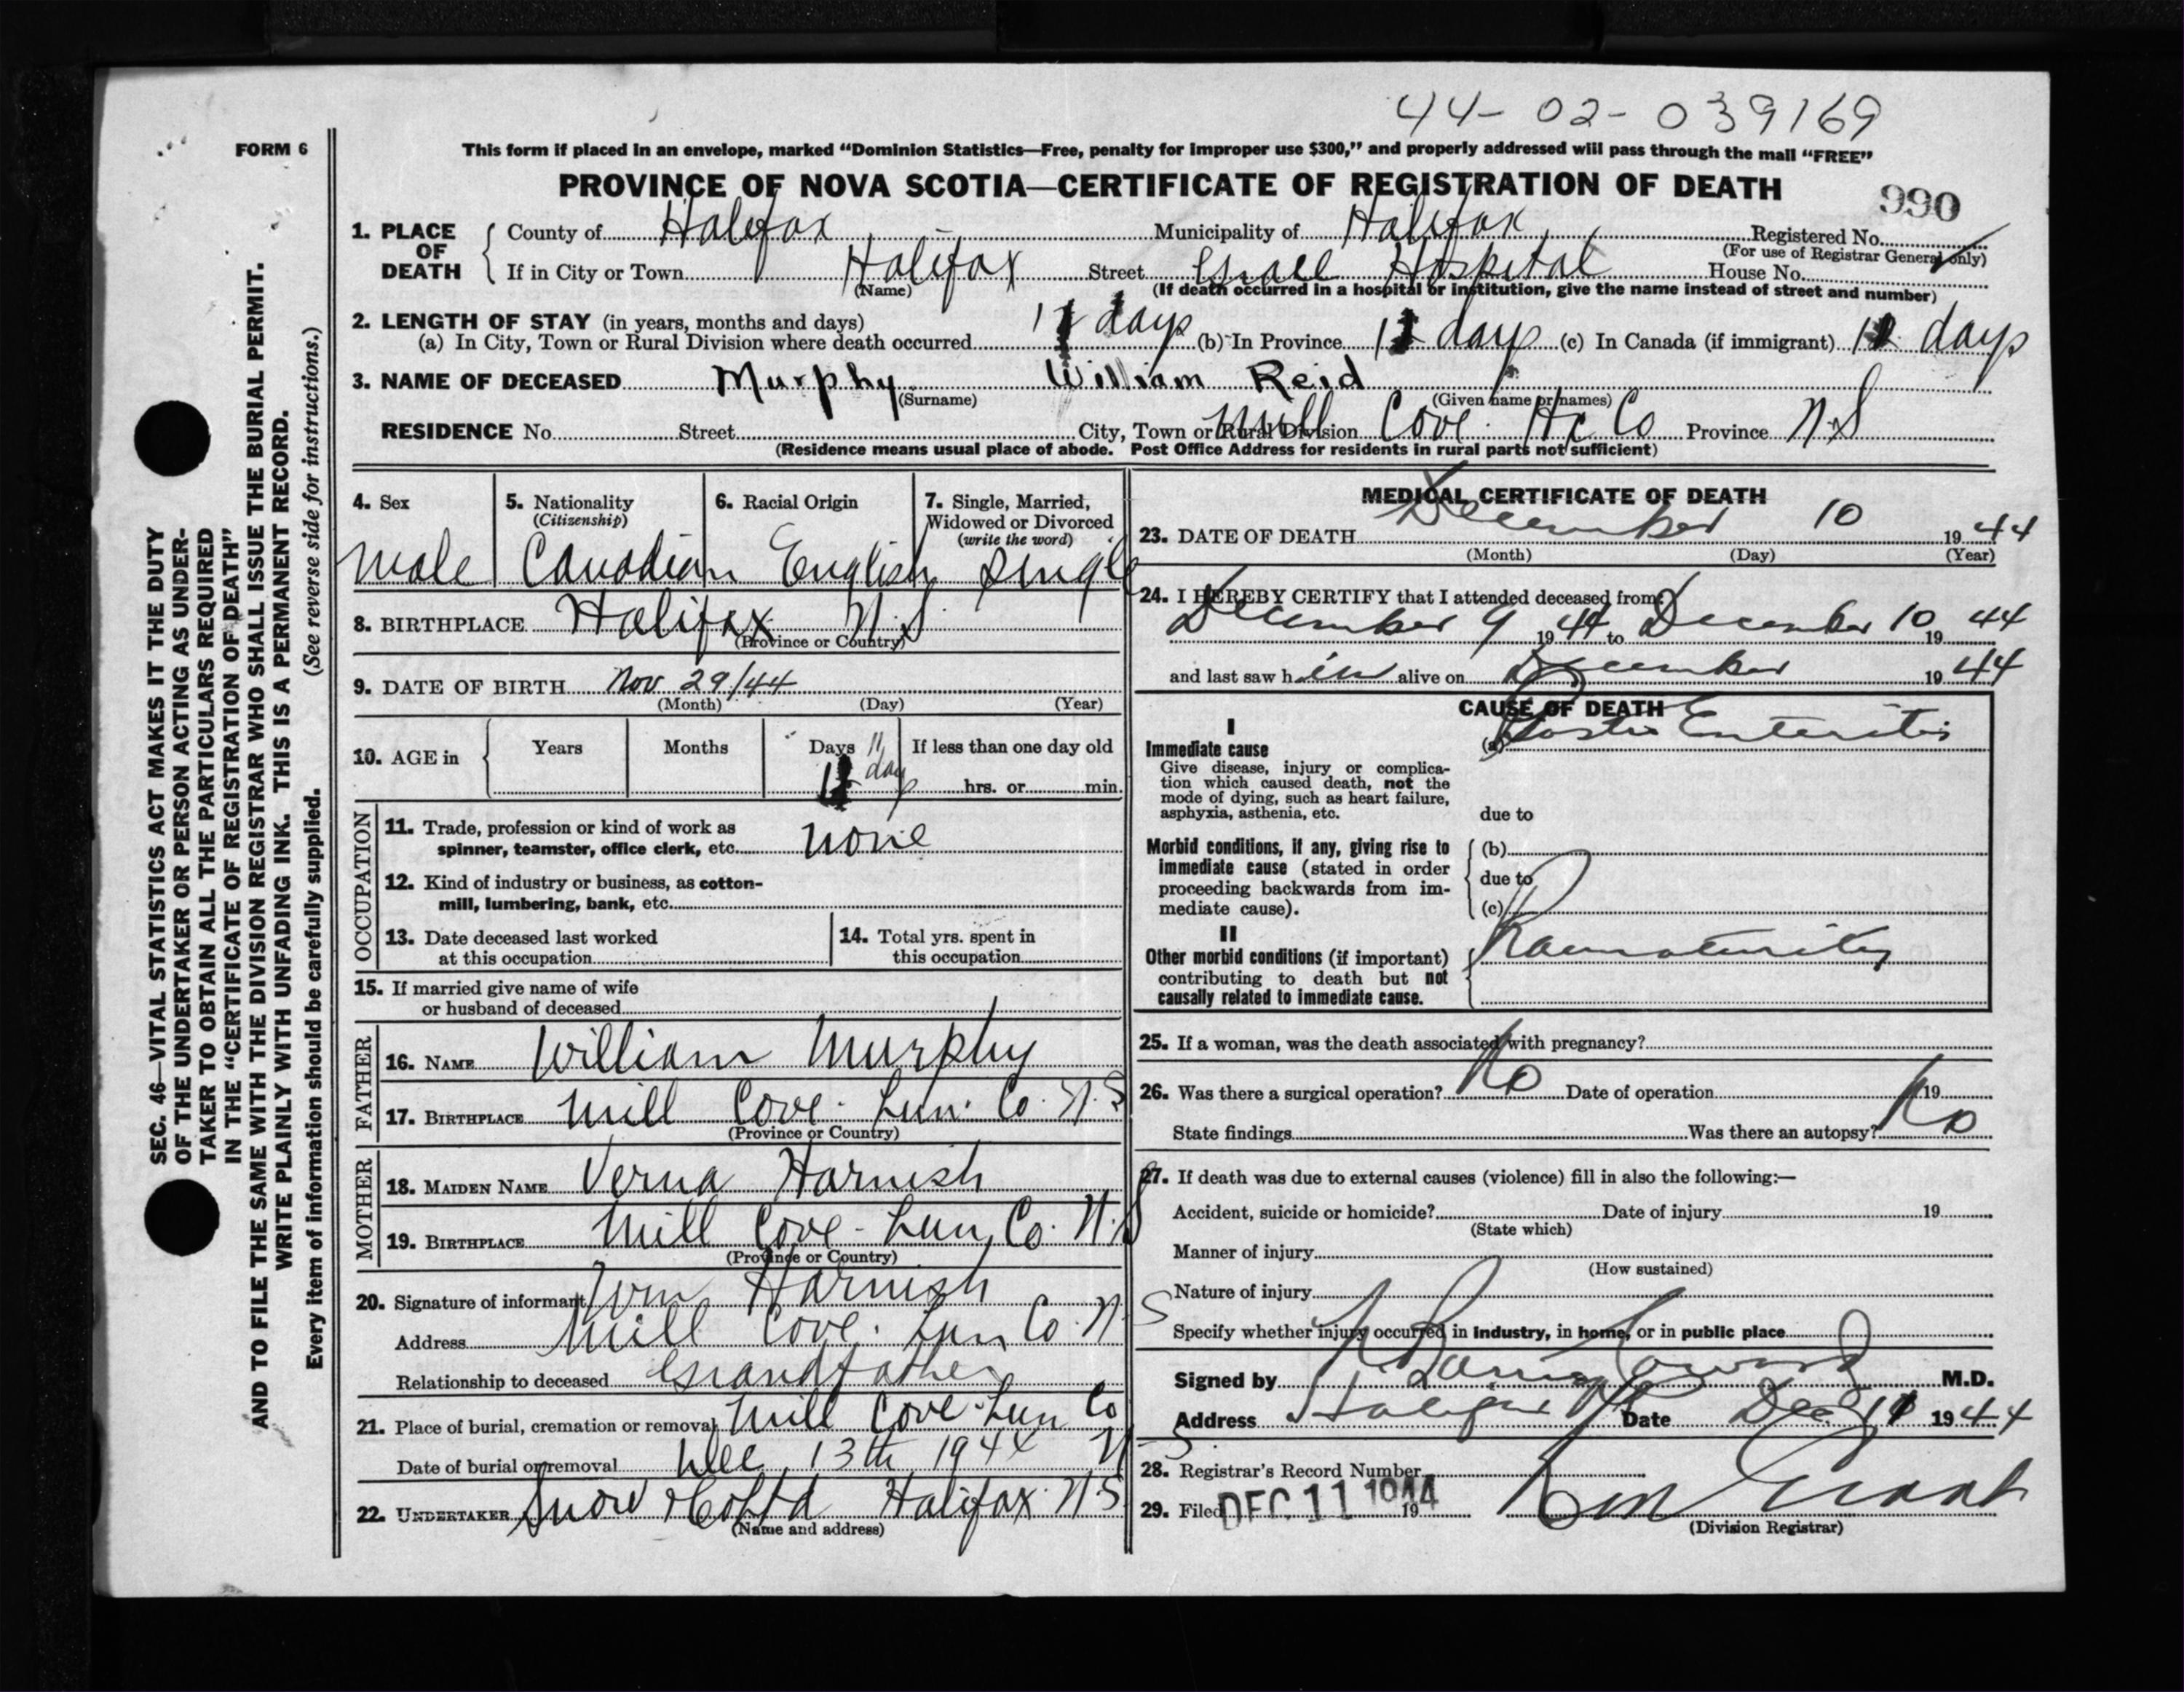 44-02-039169
FORM 6
This form if placed in an envelope, marked "Dominion Statistics—Free, penalty for improper use $300," and properly addressed will pass through the mail "FREE"
PROVINCE OF NOVA SCOTIA—CERTIFICATE OF REGISTRATION OF DEATH
990
1. PLACE OF DEATH { County of Halifax Municipality of Halifax Registered No.
(For use of Registrar General only)
If in City or Town Halifax Street Grace Hospital House No.
(Name) (If death occurred in a hospital or institution, give the name instead of street and number)
2. LENGTH OF STAY (in years, months and days)
(a) In City, Town or Rural Division where death occurred 11 days (b) In Province 11 days (c) In Canada (if immigrant) 11 days
3. NAME OF DECEASED Murphy William Reid
(Surname) (Given name or names)
RESIDENCE No. Street City, Town or Rural Division Mill Cove Hx Co Province N S
(Residence means usual place of abode. Post Office Address for residents in rural parts not sufficient)
4. Sex
male
5. Nationality
(Citizenship)
Canadian
6. Racial Origin
English
7. Single, Married,
Widowed or Divorced
(write the word)
Single
8. BIRTHPLACE Halifax N.S
(Province or Country)
9. DATE OF BIRTH Nov 29/44
(Month) (Day) (Year)
10. AGE in { Years Months Days 11 days If less than one day old
hrs. or min.
OCCUPATION
11. Trade, profession or kind of work as
spinner, teamster, office clerk, etc. none
12. Kind of industry or business, as cotton-
mill, lumbering, bank, etc.
13. Date deceased last worked
at this occupation
14. Total yrs. spent in
this occupation
15. If married give name of wife
or husband of deceased
FATHER
16. NAME William Murphy
17. BIRTHPLACE Mill Cove. Lun. Co. N.S
(Province or Country)
MOTHER
18. MAIDEN NAME Verna Harnish
19. BIRTHPLACE Mill Cove - Lun. Co. N.S
(Province or Country)
20. Signature of informant Wm Harnish
Address Mill Cove. Lun Co. N S
Relationship to deceased Grandfather
21. Place of burial, cremation or removal Mill Cove Lun Co
N S
Date of burial or removal Dec 13th 1944
22. UNDERTAKER Snow & Co Ltd Halifax N S
(Name and address)
MEDICAL CERTIFICATE OF DEATH
23. DATE OF DEATH December 10 1944
(Month) (Day) (Year)
24. I HEREBY CERTIFY that I attended deceased from:
December 9 1944 to December 10 1944
and last saw him alive on December 1944
CAUSE OF DEATH
I
Immediate cause
Give disease, injury or complica-
tion which caused death, not the
mode of dying, such as heart failure,
asphyxia, asthenia, etc.
(a) Gastro Enteritis
due to
Morbid conditions, if any, giving rise to
immediate cause (stated in order
proceeding backwards from im-
mediate cause).
(b)
due to
(c)
II
Other morbid conditions (if important)
contributing to death but not
causally related to immediate cause.
Prematurity
25. If a woman, was the death associated with pregnancy?
26. Was there a surgical operation? No Date of operation 19
State findings Was there an autopsy? No
27. If death was due to external causes (violence) fill in also the following:—
Accident, suicide or homicide? Date of injury 19
(State which)
Manner of injury
(How sustained)
Nature of injury
Specify whether injury occurred in industry, in home, or in public place
Signed by M.D.
Address Halifax NS Date Dec 11 1944
28. Registrar's Record Number
29. Filed DEC 11 1944 19
(Division Registrar)
SEC. 46—VITAL STATISTICS ACT MAKES IT THE DUTY
OF THE UNDERTAKER OR PERSON ACTING AS UNDER-
TAKER TO OBTAIN ALL THE PARTICULARS REQUIRED
IN THE "CERTIFICATE OF REGISTRATION OF DEATH"
AND TO FILE THE SAME WITH THE DIVISION REGISTRAR WHO SHALL ISSUE THE BURIAL PERMIT.
WRITE PLAINLY WITH UNFADING INK. THIS IS A PERMANENT RECORD.
Every item of information should be carefully supplied. (See reverse side for instructions.)